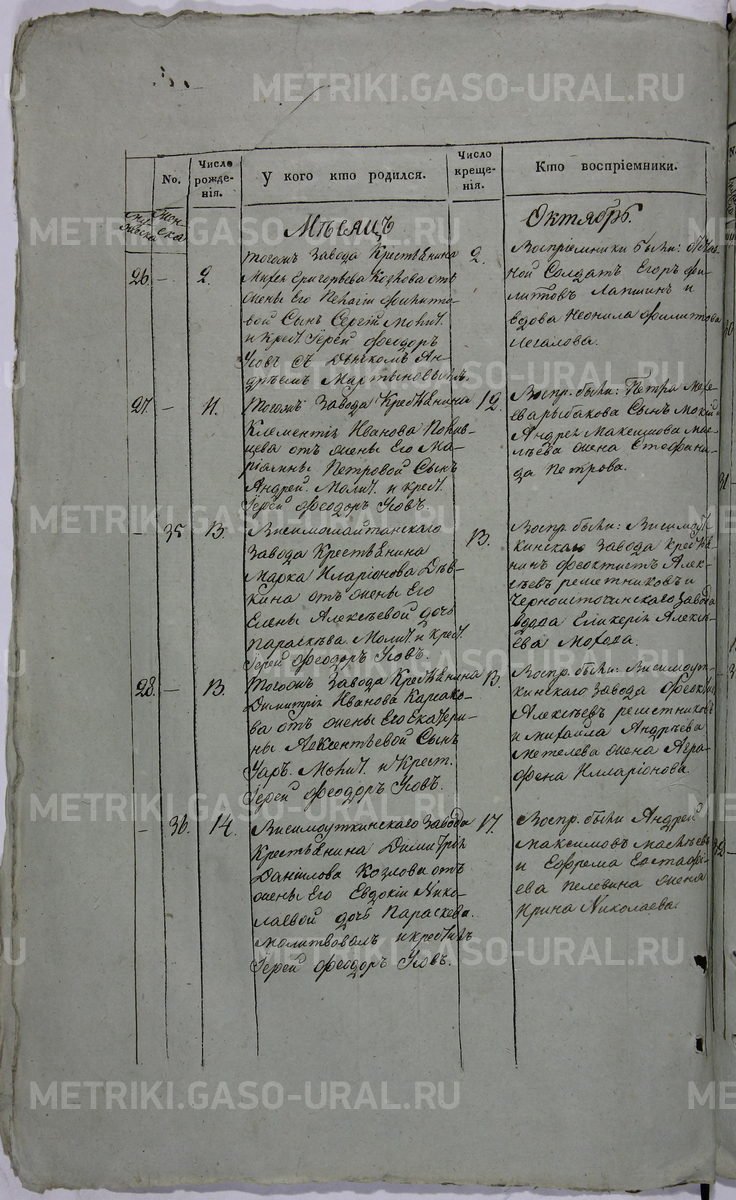 METRIKI.GASO-URAL.RU
No.
Число рожде-нія.
У кого кто родился.
Число креще-нія.
Кто воспріемники.
Мѣсяцъ
Октябрь.
26. — 2.
тогожъ Завода Крестьянина
Григорьева Козлова отъ
жены Его Пелагіи Филипо-
вой Сынъ Сергій Молит.
и Крест. Іерей Феодоръ
Уовъ съ Дьячкомъ Ан-
дрѣемъ Мартыновымъ.
2.
Воспріемники были:
ной Солдатъ Егоръ Фи-
липповъ Лапшинъ и
вдова Неонила Филипова
Легалова.
27. — 11.
Тогожъ Завода Крестьянина
Климентія Иванова
отъ жены Его Ма-
ріанны Петровой Сынъ
Андрей. Молит. и крест.
Іерей Феодоръ Уовъ.
12.
Воспр. были: Петра Михе-
ева рыбакова Сынъ Мокій и
Андрея Максимова Мас-
лѣева жена Стефани-
да Петрова.
— 35. 13.
Висимошайтанскаго
Завода Крестьянина
Марка Иларіонова Дѣв-
кина отъ жены Его
Елены Алексѣевой дочь
Параскѣва. Молит. и крест.
Іерей Феодоръ Уовъ.
13.
Воспр. были: Висимоут-
кинскаго Завода крестья-
нинъ Феоктистъ Алек-
сѣевъ решетниковъ и
Черноисточинскаго Завода
вдова Гликерія Алексѣ-
ева Мохова.
28. — 13.
Тогожъ Завода Крестьянина
Димитрія Иванова
отъ жены Его Екатери-
ны Авксентьевой Сынъ
Уаръ. Молит. и Крест.
Іерей Феодоръ Уовъ.
13.
Воспр. были: Висимоут-
кинскаго Завода Феоктис
Алексѣевъ решетниковъ
и михайла Андрѣева
метелева жена Агра-
фена Илларіонова.
— 36. 14.
Висимоуткинскаго Завода
Крестьянина Димитрія
Данілова Козлова отъ
жены Его Евдокіи Нико-
лаевой дочь Параскева.
молитвовалъ и крестилъ
Іерей Феодоръ Уовъ.
17.
Воспр. были Андрей
Максимовъ Маслѣевъ
и Ефрема Евстафі-
ева пелевина жена
Ирина Николаева.